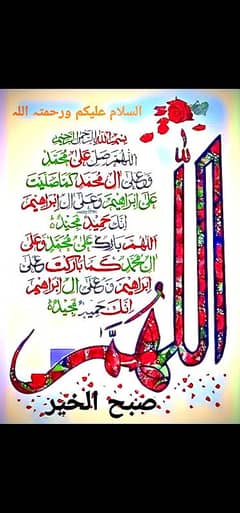 السلام علیکم ورحمتہ اللہ
بسم الله الرحمن الرحيم
اللهم صل على محمد
وعلى آل محمد كما صليت
على إبراهيم وعلى آل إبراهيم
إنك حميد مجيد
اللهم بارك على محمد وعلى
آل محمد كما باركت وعلى
إبراهيم وعلى آل إبراهيم
إنك حميد مجيد
اللهم
صبح الخير